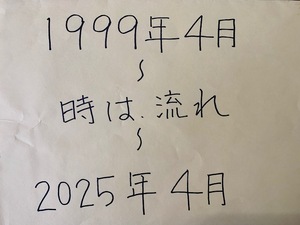 1999年4月
~
時は、流れ
~
2025年4月